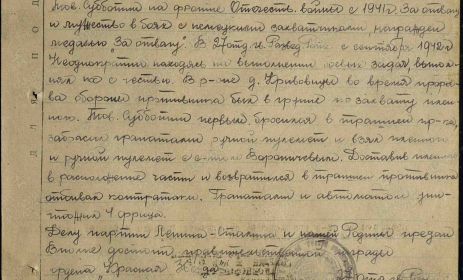 Тов. Субботин на фронте Отечеств. войны с 1941г. За отвагу
и мужество в боях с немецкими захватчиками награжден
медалью За отвагу". В с сентября 1942г
Неоднократно находясь на выполнении боевых задач, выпол-
нял их с честью. В р-не д. Кривовицы во время проры-
ва обороны противника был в группе по захвату плен-
ного. Тов. Субботин первый бросился в траншеи пр-ка,
забросал гранатами ручной пулемет и взял пленного
и ручной пулемет с Вороничевым. Доставив пленного
в расположение части и возвратился в траншеи противника
отбивая контратаки. Гранатами и автоматом уни-
чтожил 4 фрица.
Делу партии Ленина-Сталина и нашей Родины предан
Вполне достоин правительственной награды
ордена Красная Звезда